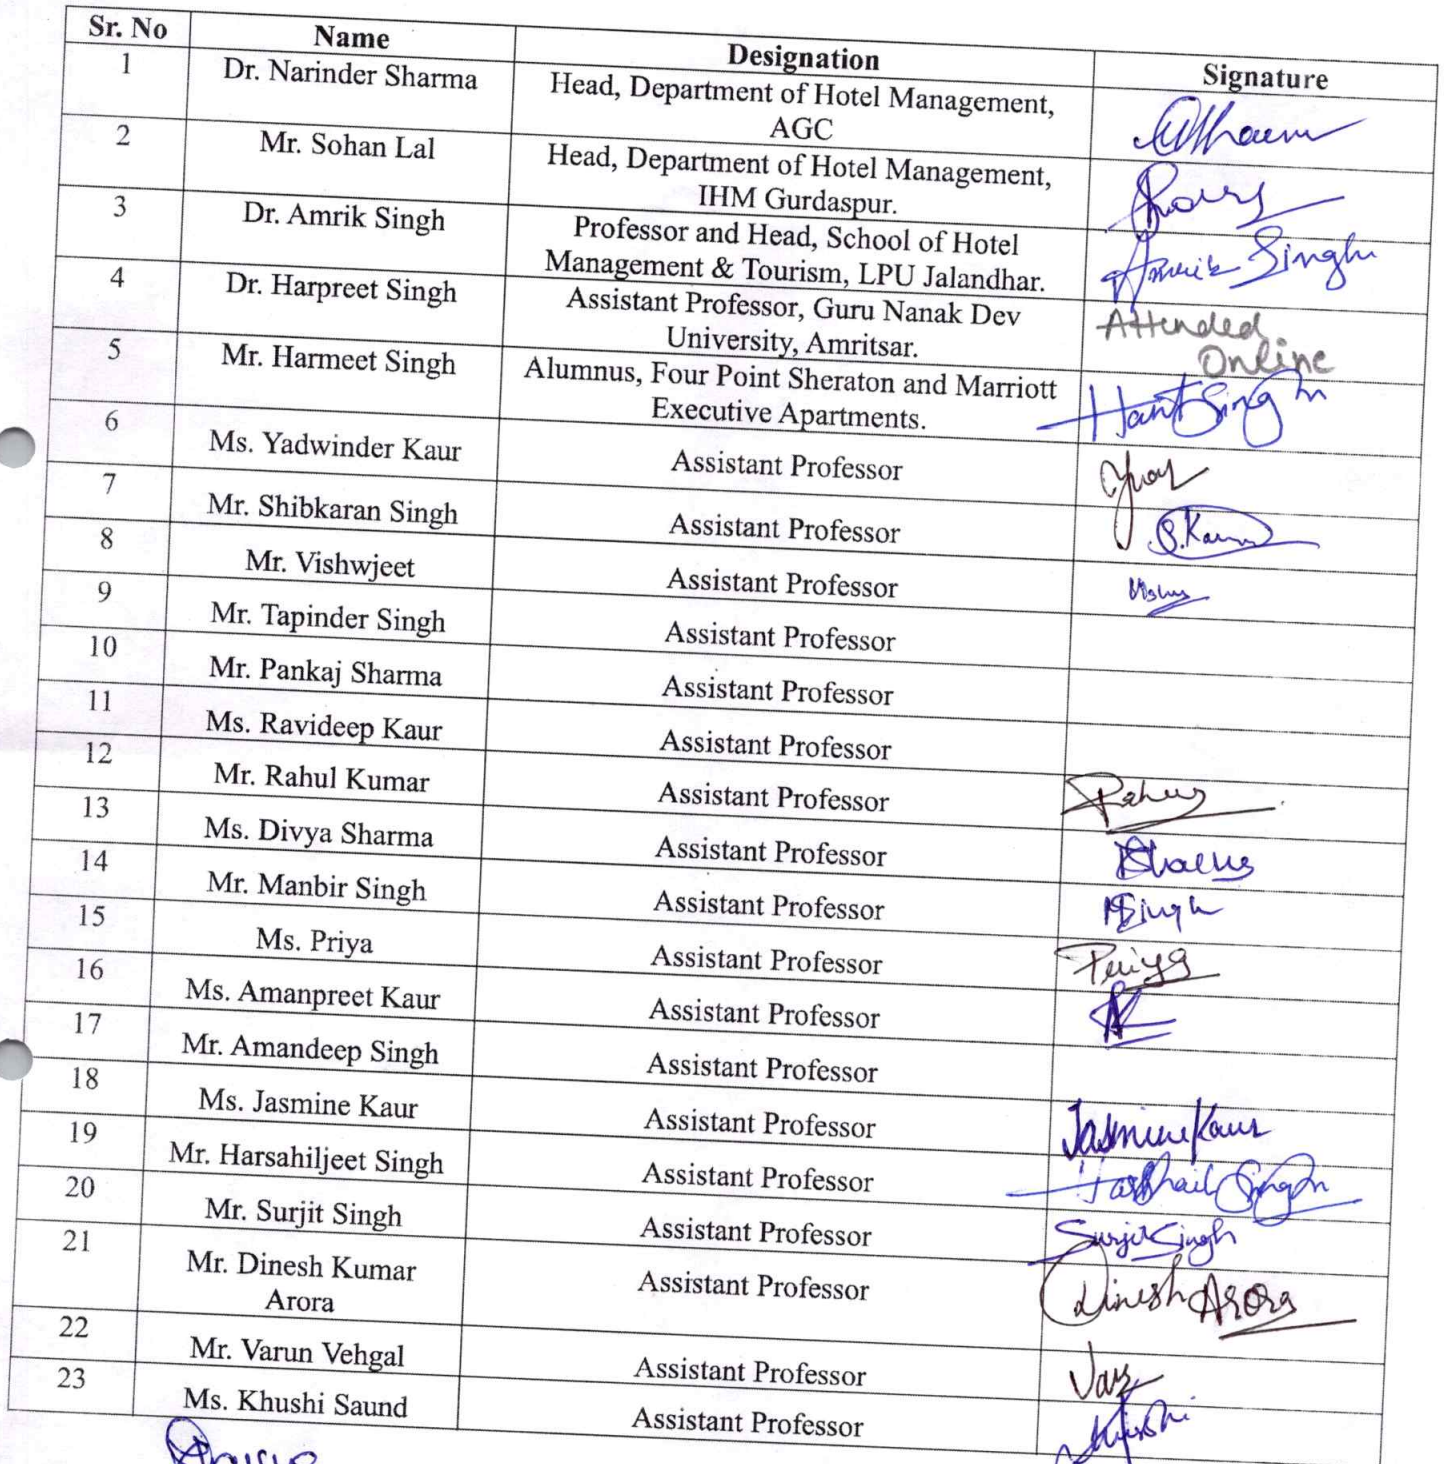 Sr. No Name Designation Signature
1 Dr. Narinder Sharma Head, Department of Hotel Management,
AGC
2 Mr. Sohan Lal Head, Department of Hotel Management,
IHM Gurdaspur.
3 Dr. Amrik Singh Professor and Head, School of Hotel Amrik Singh
Management & Tourism, LPU Jalandhar.
4 Dr. Harpreet Singh Assistant Professor, Guru Nanak Dev Attended
University, Amritsar. Online
5 Mr. Harmeet Singh Alumnus, Four Point Sheraton and Marriott
Executive Apartments.
6 Ms. Yadwinder Kaur Assistant Professor
7 Mr. Shibkaran Singh Assistant Professor
8 Mr. Vishwjeet Assistant Professor
9 Mr. Tapinder Singh Assistant Professor
10 Mr. Pankaj Sharma Assistant Professor
11 Ms. Ravideep Kaur Assistant Professor
12 Mr. Rahul Kumar Assistant Professor
13 Ms. Divya Sharma Assistant Professor
14 Mr. Manbir Singh Assistant Professor MSingh
15 Ms. Priya Assistant Professor Priya
16 Ms. Amanpreet Kaur Assistant Professor
17 Mr. Amandeep Singh Assistant Professor
18 Ms. Jasmine Kaur Assistant Professor Jasmine Kaur
19 Mr. Harsahiljeet Singh Assistant Professor
20 Mr. Surjit Singh Assistant Professor Surjit Singh
21 Mr. Dinesh Kumar Assistant Professor Dinesh Arora
Arora
22 Mr. Varun Vehgal Assistant Professor
23 Ms. Khushi Saund Assistant Professor Khushi